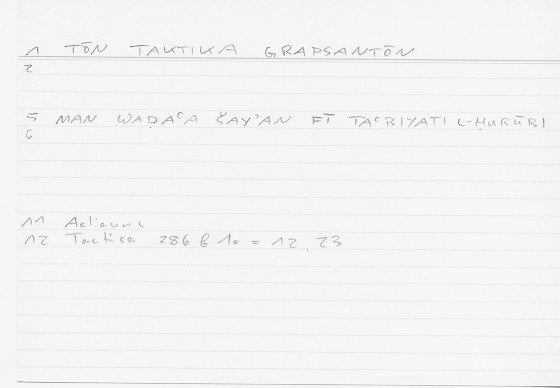 1 TŌN TAKTIKA GRAPSANTŌN
2
5 MAN WAḌAʿA ŠAYʾAN FĪ TAʿBIYATI L-ḤURŪBI
6
11 Aelianus
12 Tactica 286 b 10 = 12.23